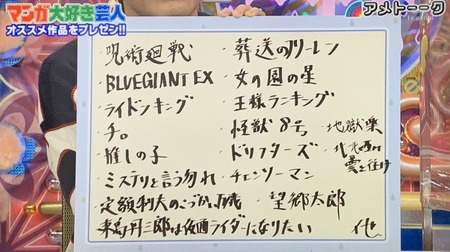 マンガ大好き芸人
オススメ作品をプレゼン!!
アメトーーク
呪術廻戦
葬送のフリーレン
BLUEGIANT EX
女の園の星
ライドンキング
王様ランキング
チ。
怪獣8号
地獄楽
推しの子
ドリフターズ
ミステリと言う勿れ
チェンソーマン
定額利夫のこづかい万歳
望郷太郎
東島丹三郎は仮面ライダーになりたい